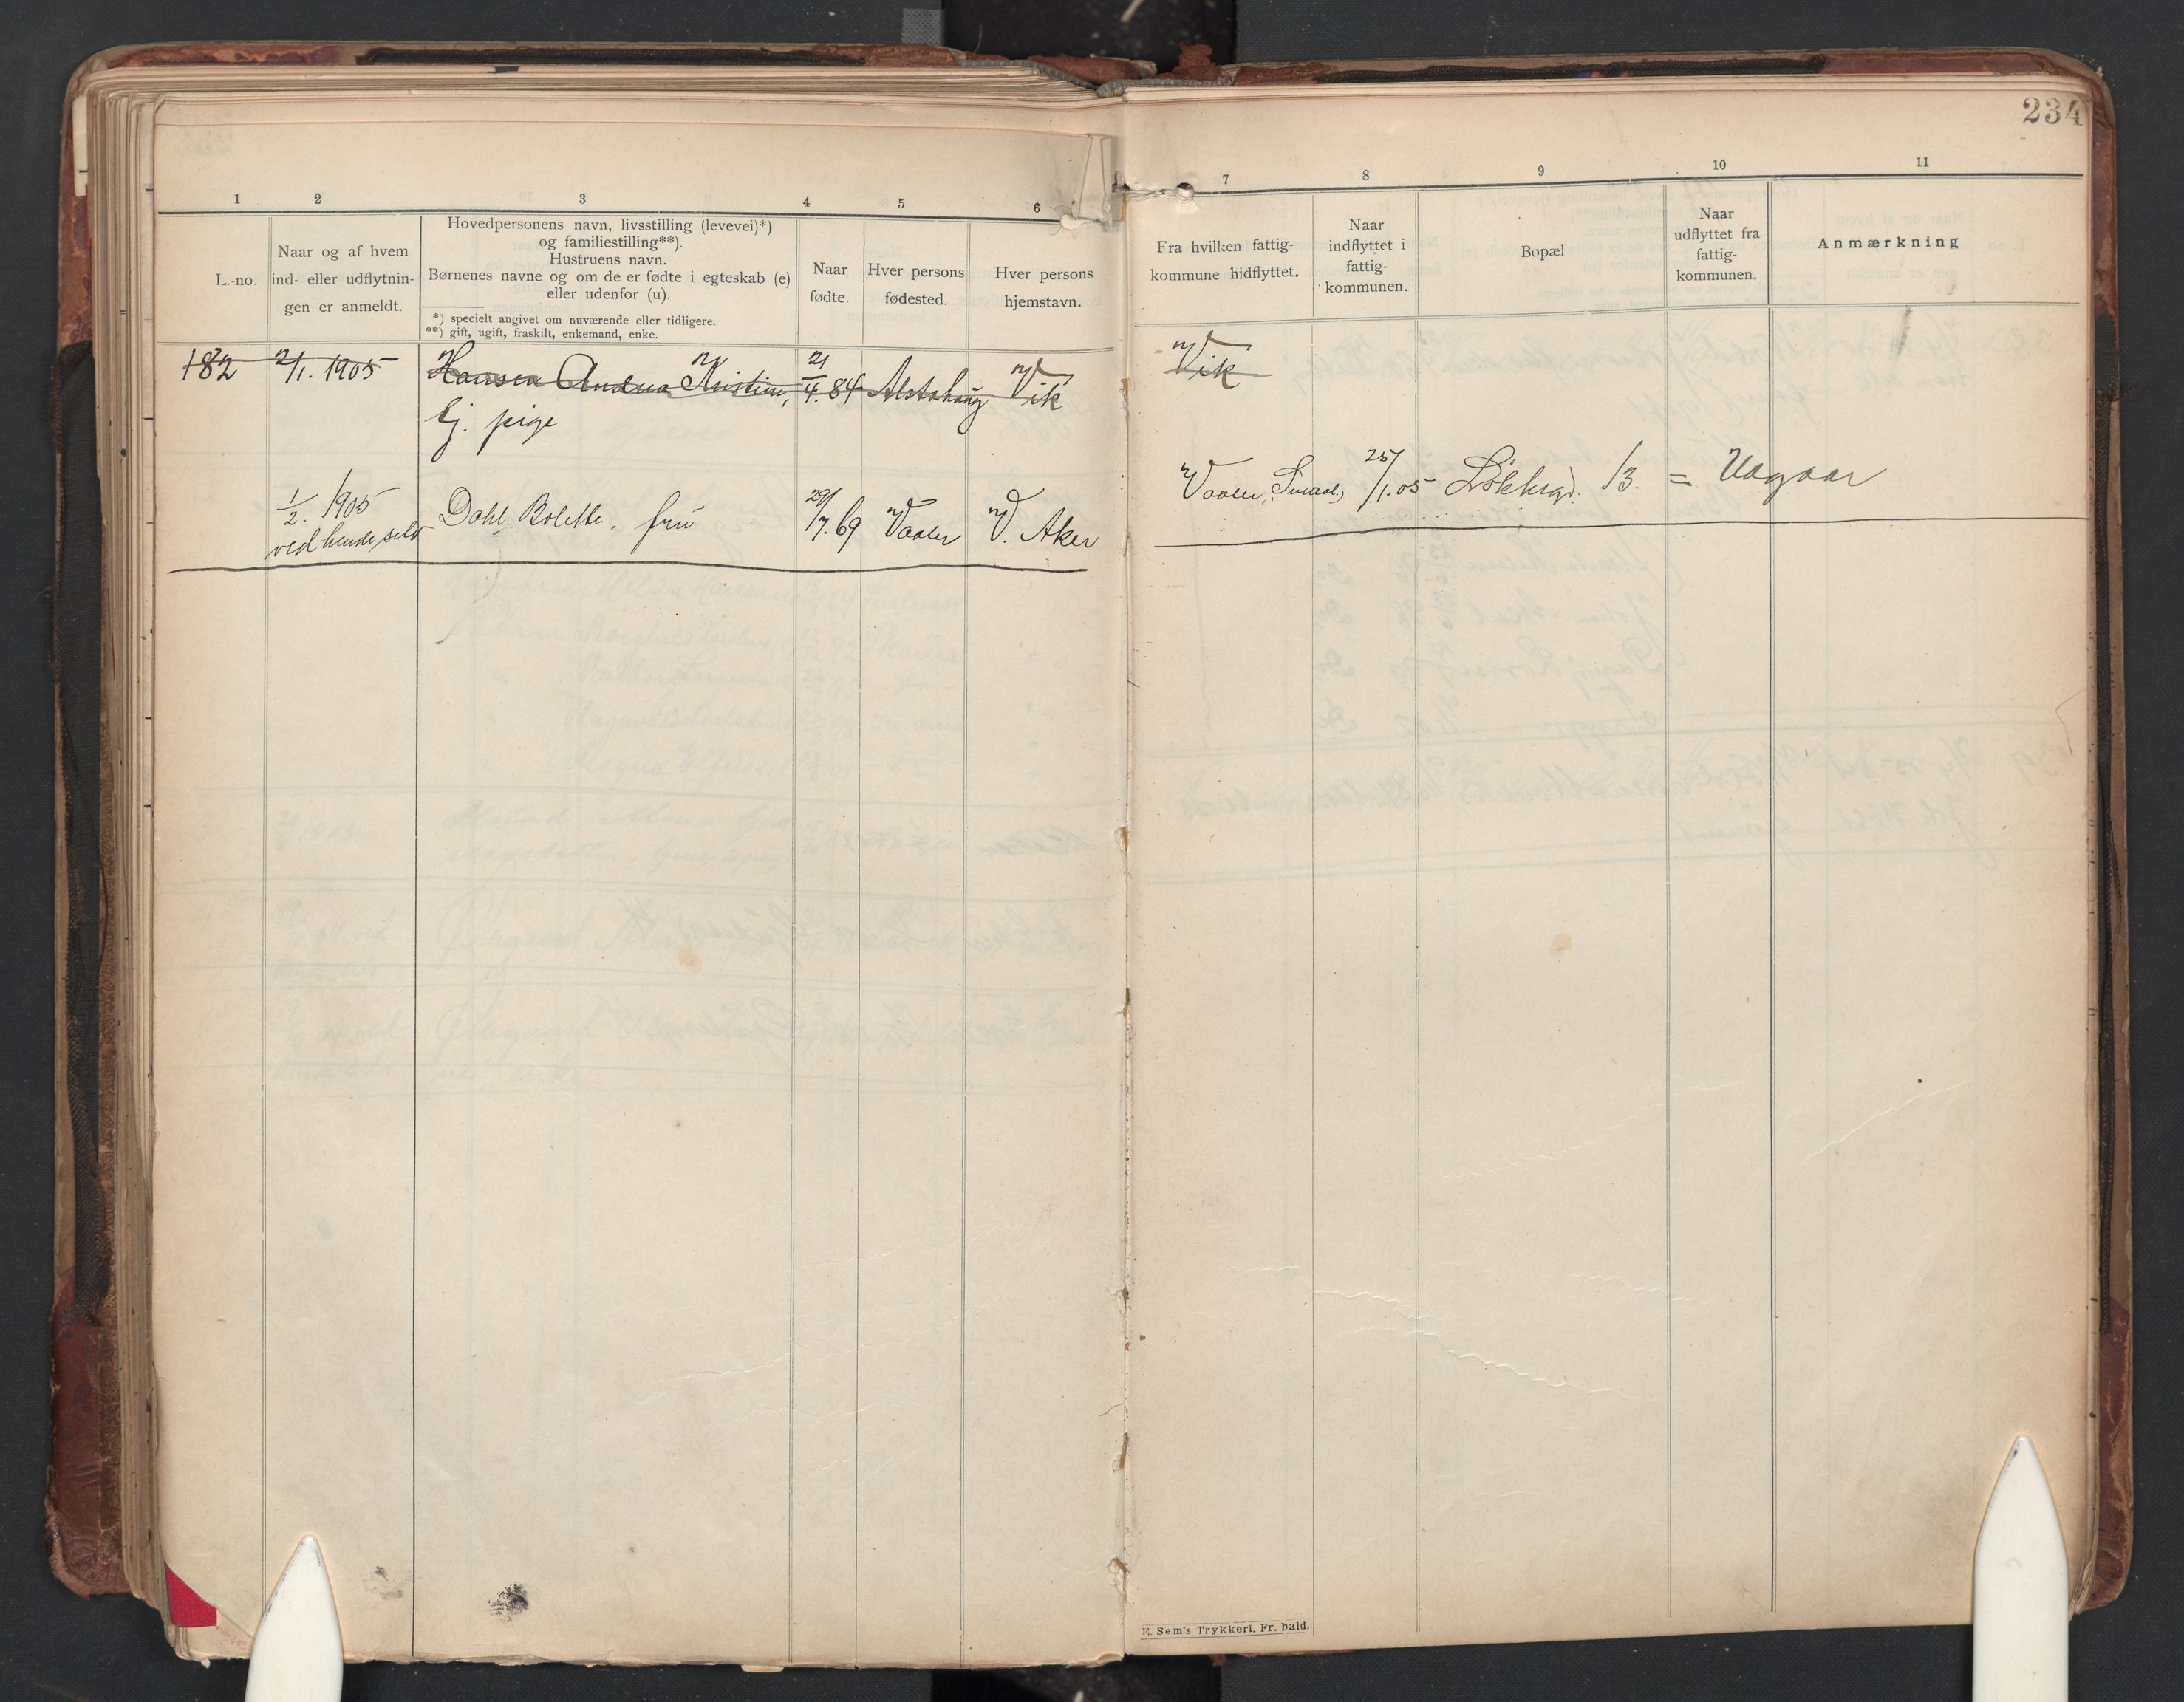 234
1 2 3 4 5 6
7 8 9 10 11
L.-no.
Naar og af hvem
ind- eller udflytnin-
gen er anmeldt.
Hovedpersonens navn, livsstilling (levevei)*)
og familiestilling**).
Hustruens navn.
Børnenes navne og om de er fødte i egteskab (e)
eller udenfor (u).
*) specielt angivet om nuværende eller tidligere.
**) gift, ugift, fraskilt, enkemand, enke.
Naar
fødte.
Hver persons
fødested.
Hver persons
hjemstavn.
Fra hvilken fattig-
kommune hidflyttet.
Naar
indflyttet i
fattig-
kommunen.
Bopæl
Naar
udflyttet fra
fattig-
kommunen.
Anmærkning
182 2/1. 1905 Hansen Andrea Kristine, 21/4. 84 Alstahaug Vik Vik
tj. pige
1/2. 1905 Dahl Bolette. frü 29/7. 69 Vaaler V. Aker Vaaler, 25/1. 05 13. =
ved hende selv
E. Sem's Trykkeri, Fr. hald.